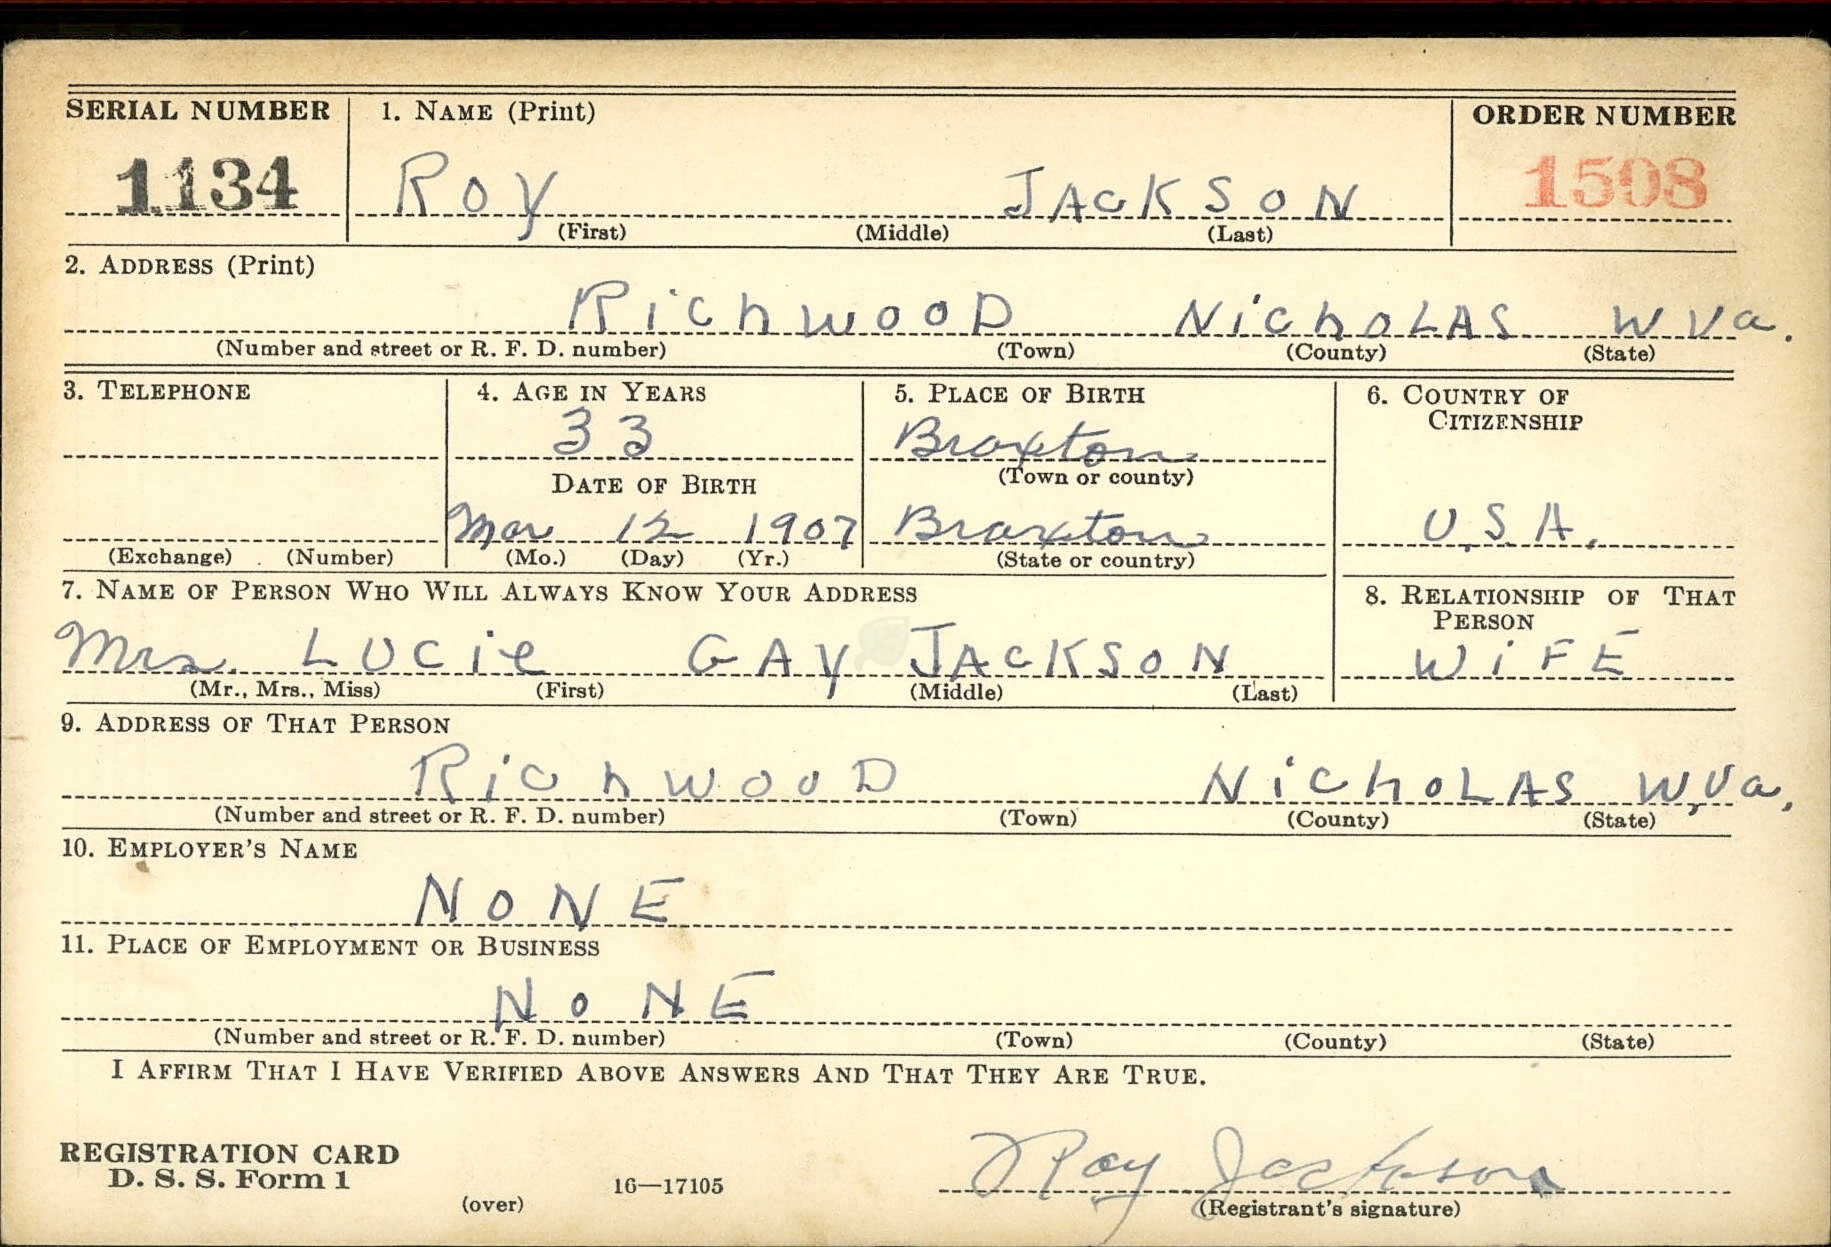 SERIAL NUMBER 1. NAME (Print) ORDER NUMBER
1134 ROY JACKSON 1508
(First) (Middle) (Last)
2. ADDRESS (Print)
RichwooD NichoLAS W Va.
(Number and street or R. F. D. number) (Town) (County) (State)
3. TELEPHONE 4. AGE IN YEARS 5. PLACE OF BIRTH 6. COUNTRY OF CITIZENSHIP
33 Braxton
DATE OF BIRTH (Town or county)
Mar 12 1907 Braxton U.S.A.
(Exchange) (Number) (Mo.) (Day) (Yr.) (State or country)
7. NAME OF PERSON WHO WILL ALWAYS KNOW YOUR ADDRESS 8. RELATIONSHIP OF THAT PERSON
Mrs. LUCie GAY JACKSON WiFE
(Mr., Mrs., Miss) (First) (Middle) (Last)
9. ADDRESS OF THAT PERSON
RichwooD NichoLAS W, Va,
(Number and street or R. F. D. number) (Town) (County) (State)
10. EMPLOYER'S NAME
NONE
11. PLACE OF EMPLOYMENT OR BUSINESS
NONE
(Number and street or R. F. D. number) (Town) (County) (State)
I AFFIRM THAT I HAVE VERIFIED ABOVE ANSWERS AND THAT THEY ARE TRUE.
REGISTRATION CARD
D. S. S. Form 1
(over) 16—17105
Roy Jackson
(Registrant's signature)